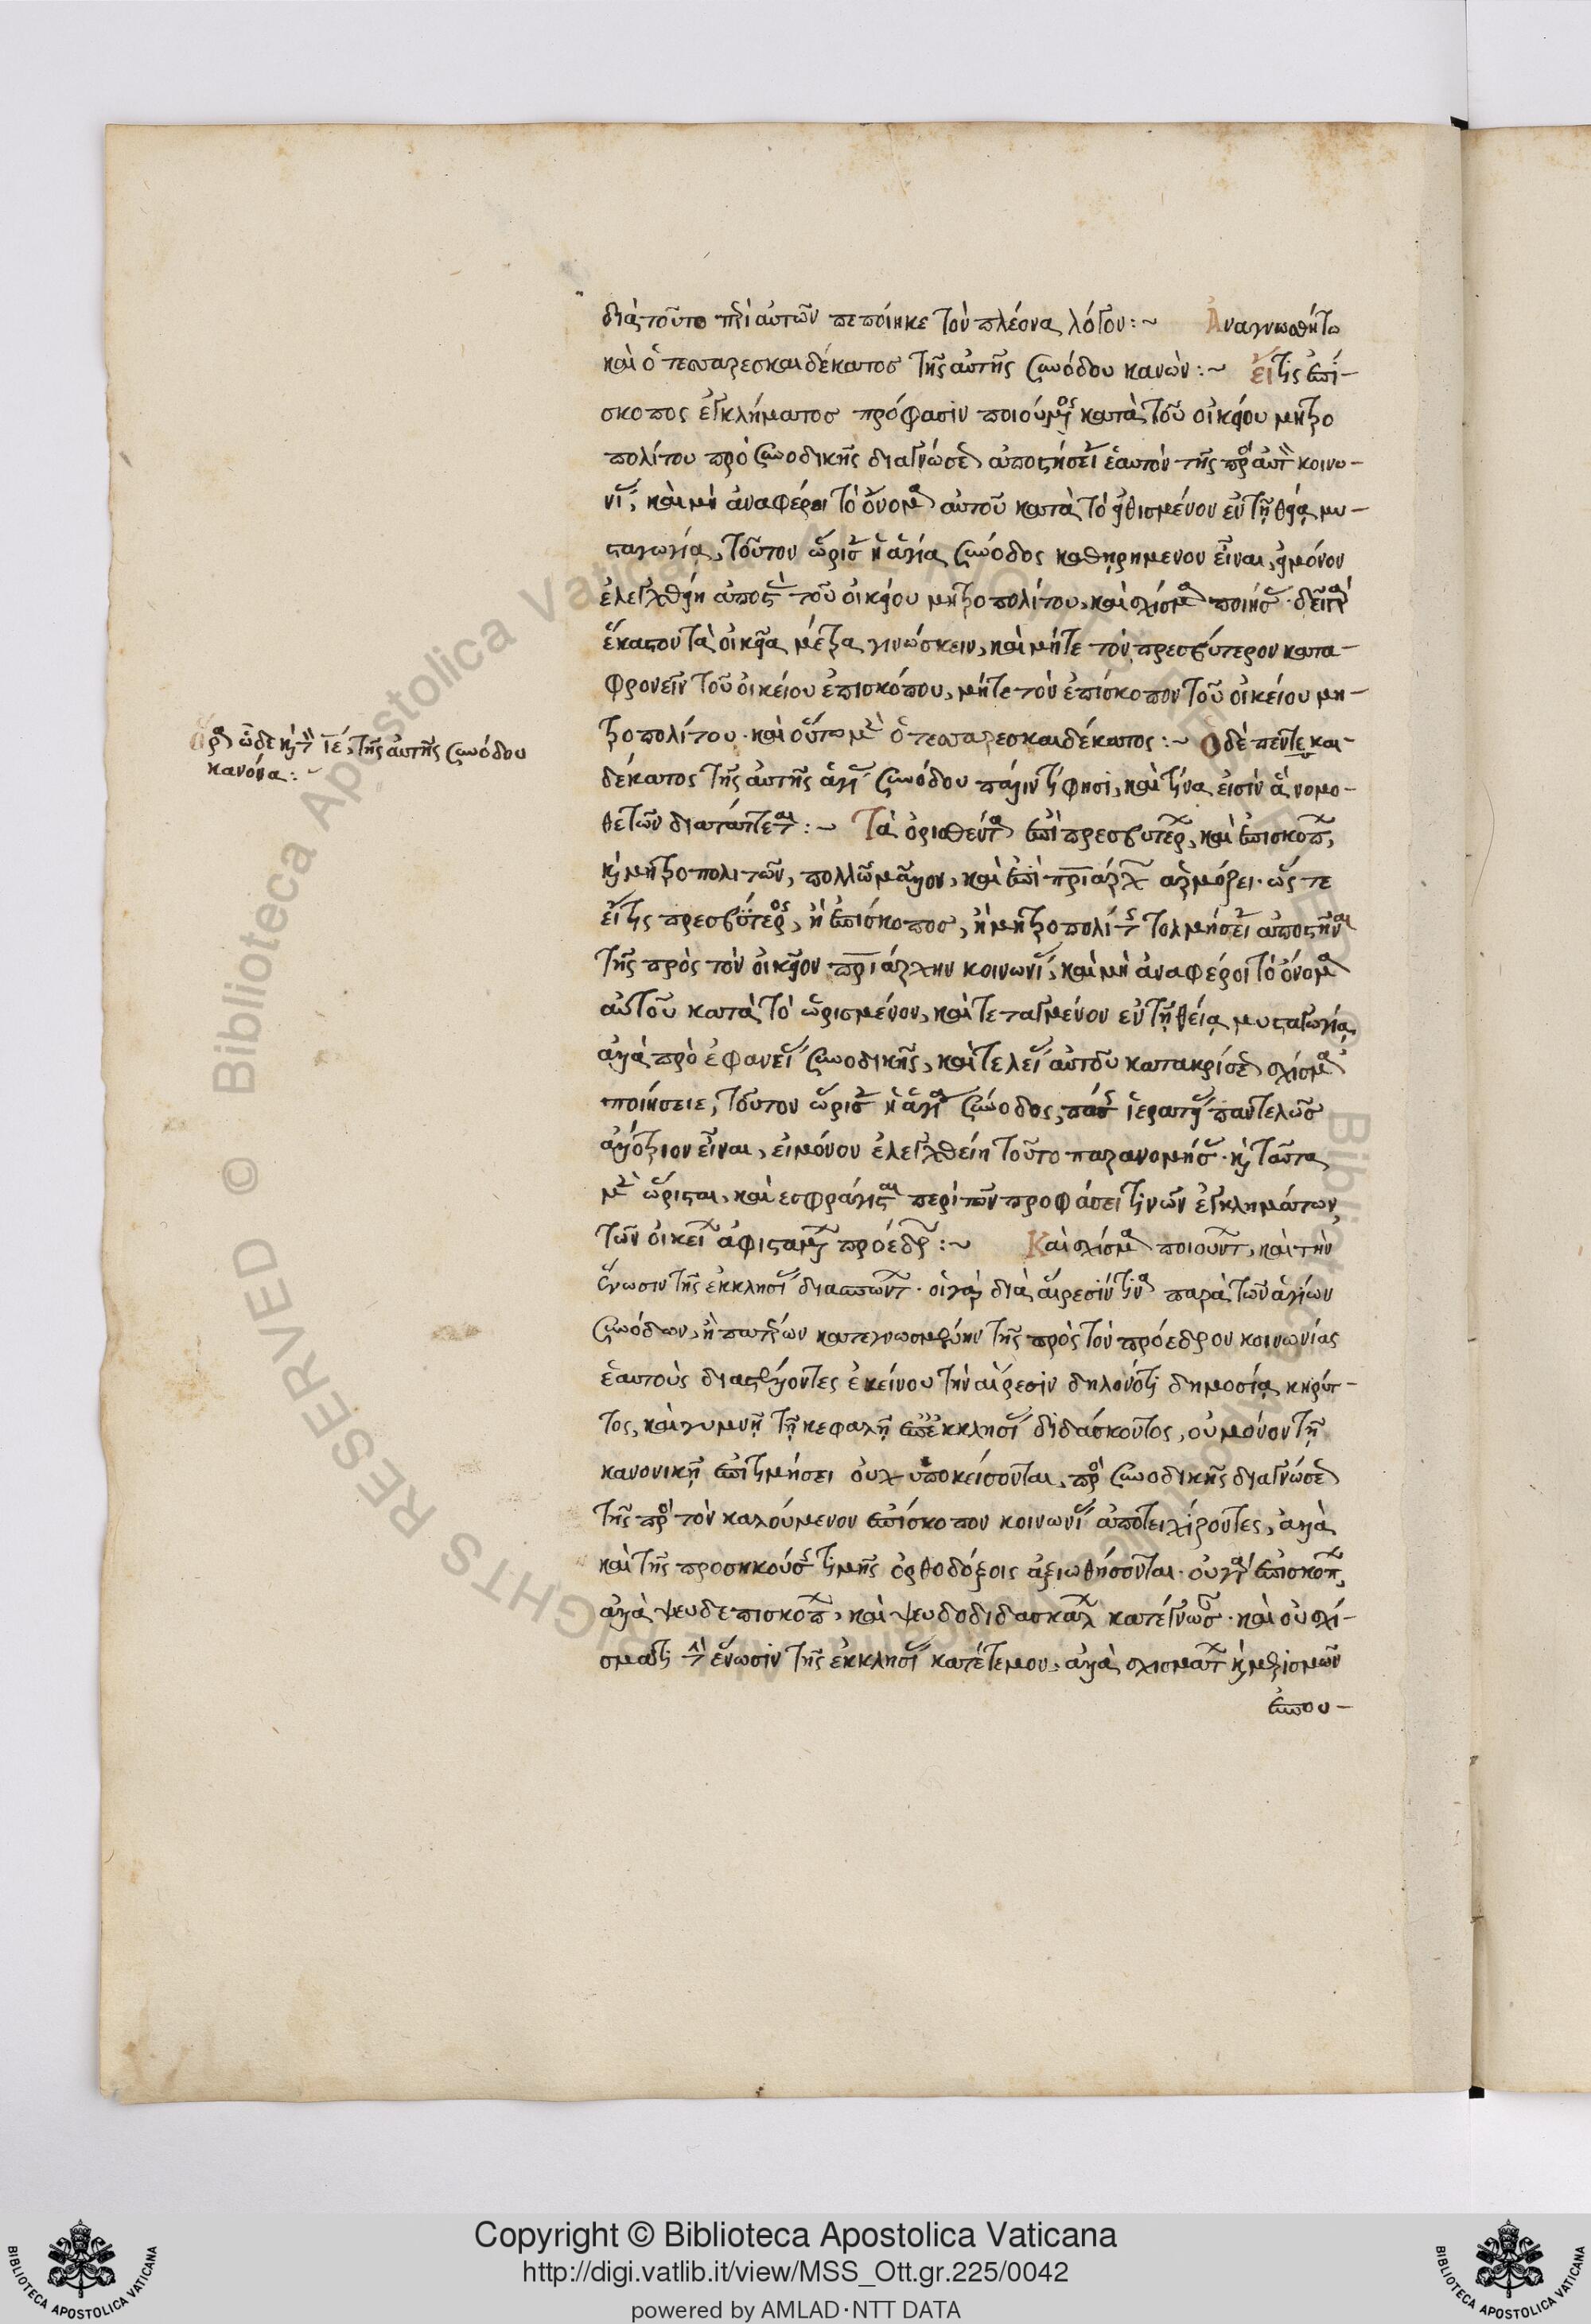 διὰ τοῦτο περὶ αὐτῶν πεποίηκε τὸν πλέονα λόγον :~ Ἀναγνωσθήτω
καὶ ὁ τεσσαρεσκαιδέκατος τῆς αὐτῆς συνόδου κανών :~ εἴ τις ἐπί-
σκοπος ἐγκλήματος πρόφασιν ποιούμενος κατὰ τοῦ οἰκείου μητρο
πολίτου πρὸ συνοδικῆς διαγνώσεως ἀποστήσει ἑαυτὸν τῆς πρὸς αὐτὸν κοινω-
νίας, καὶ μὴ ἀναφέροι τὸ ὄνομα αὐτοῦ κατὰ τὸ εἰθισμένον ἐν τῇ θείᾳ μυ-
σταγωγίᾳ, τοῦτον ὥρισεν ἡ ἁγία σύνοδος καθῃρημένον εἶναι, εἰ μόνον
ἐλεγχθείη ἀποστὰς τοῦ οἰκείου μητροπολίτου, καὶ σχίσμα ποιήσας· δεῖ γὰρ
ἕκαστον τὰ οἰκεῖα μέτρα γινώσκειν, καὶ μήτε τὸν πρεσβύτερον κατα-
φρονεῖν τοῦ οἰκείου ἐπισκόπου, μήτε τὸν ἐπίσκοπον τοῦ οἰκείου μη-
τροπολίτου· καὶ οὕτω μὲν ὁ τεσσαρεσκαιδέκατος :~ Ὁ δὲ πεντεκαι-
Ὅρα ὧδε καὶ τὸν ιε´, τῆς αὐτῆς συνόδου
κανόνα :~
δέκατος τῆς αὐτῆς ἁγίας συνόδου πάλιν τί φησι, καὶ τίνα εἰσὶν ἃ νομο-
θετῶν διατάττεται :~ Τὰ ὁρισθέντα ἐπὶ πρεσβυτέρων, καὶ ἐπισκόπων,
καὶ μητροπολιτῶν, πολλῷ μᾶλλον, καὶ ἐπὶ πατριαρχῶν ἁρμόζει· ὥς τε
εἴ τις πρεσβύτερος, ἢ ἐπίσκοπος, ἢ μητροπολίτης τολμήσει ἀποστῆναι
τῆς πρὸς τὸν οἰκεῖον πατριάρχην κοινωνίας, καὶ μὴ ἀναφέροι τὸ ὄνομα
αὐτοῦ κατὰ τὸ ὡρισμένον, καὶ τεταγμένον ἐν τῇ θείᾳ μυσταγωγίᾳ,
ἀλλὰ πρὸ ἐμφανείας συνοδικῆς, καὶ τελείας αὐτοῦ κατακρίσεως σχίσμα
ποιήσειε, τοῦτον ὥρισεν ἡ ἁγία σύνοδος, πάσης ἱερατείας παντελῶς
ἀλλότριον εἶναι, εἰ μόνον ἐλεγχθείη τοῦτο παρανομήσας· καὶ ταῦτα
μὲν ὥρισται, καὶ ἐσφράγισται περὶ τῶν προφάσει τινῶν ἐγκλημάτων,
τῶν οἰκείων ἀφισταμένων προέδρων :~ Καὶ σχίσμα ποιούντων, καὶ τὴν
ἕνωσιν τῆς ἐκκλησίας διασπώντων· οἱ γὰρ διὰ αἵρεσίν τινα παρὰ τῶν ἁγίων
συνόδων, ἢ πατέρων κατεγνωσμένην τῆς πρὸς τὸν πρόεδρον κοινωνίας
ἑαυτοὺς διαστέλλοντες ἐκείνου τὴν αἵρεσιν δηλονότι δημοσίᾳ κηρύτ-
τος, καὶ γυμνῇ τῇ κεφαλῇ ἐπ' ἐκκλησίας διδάσκοντος, οὐ μόνον τῇ
κανονικῇ ἐπιτιμήσει οὐχ ὑποκείσονται, πρὸ συνοδικῆς διαγνώσεως
τῆς πρὸς τὸν καλούμενον ἐπίσκοπον κοινωνίας ἀποτειχίζοντες, ἀλλὰ
καὶ τῆς προσηκούσης τιμῆς ὀρθοδόξοις ἀξιωθήσονται· οὐ γὰρ ἐπισκόπων,
ἀλλὰ ψευδεπισκόπων, καὶ ψευδοδιδασκάλων κατέγνωσαν· καὶ οὐ σχί-
σματι τὴν ἕνωσιν τῆς ἐκκλησίας κατέτεμον, ἀλλὰ σχισμάτων καὶ μερισμῶν
ἐσπου-
Copyright © Biblioteca Apostolica Vaticana
http://digi.vatlib.it/view/MSS_Ott.gr.225/0042
powered by AMLAD·NTT DATA